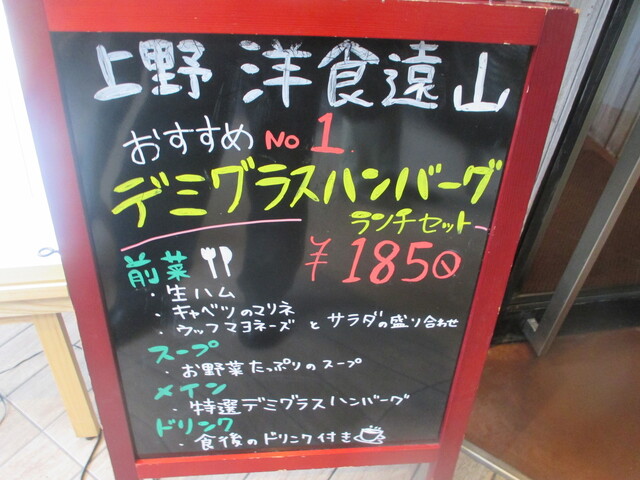 上野 洋食遠山
おすすめ No 1
デミグラスハンバーグ
ランチセット
¥1850
前菜
・生ハム
・キャベツのマリネ
・ウッフマヨネーズ と サラダの盛り合わせ
スープ
・お野菜たっぷりのスープ
メイン
・特選デミグラスハンバーグ
ドリンク
・食後のドリンク付き